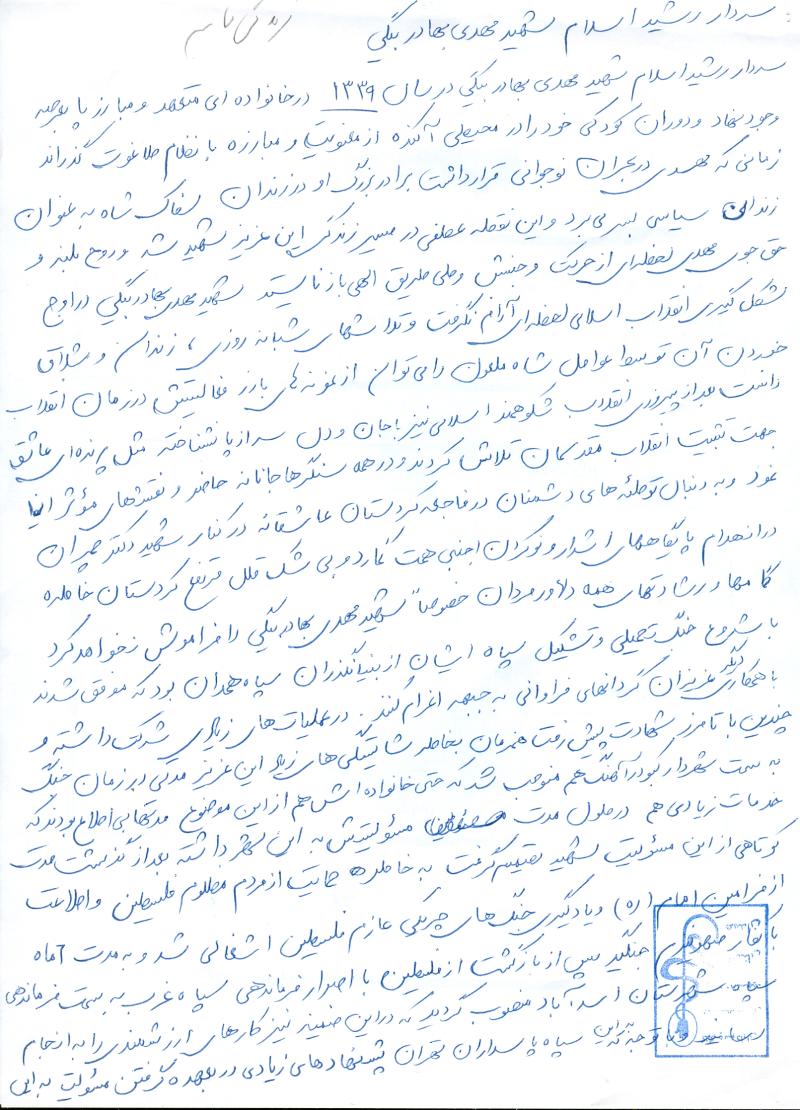 زندگی نامه
سردار رشید اسلام شهید مهدی بهادربیگی
سردار رشید اسلام شهید مهدی بهادربیگی در سال ۱۳۳۹ در خانواده ای متعهد و مبارز پا بعرصه
وجود نهاد و دوران کودکی خود را در محیطی آکنده از معنویت و مبارزه با نظام طاغوت گذراند
زمانی که مهدی در بحران نوجوانی قرار داشت برادر بزرگ او در زندان سفاک شاه به عنوان
زندانی سیاسی بسر می برد و این نقطه عطفی در مسیر زندگی این عزیز شهید شد و روح بلند و
حق جوی مهدی لحظه ای از حرکت و جنبش و طی طریق الهی باز نایستید شهید مهدی بهادربیگی در اوج
شکل گیری انقلاب اسلامی لحظه ای آرام نگرفت و تلاشهای شبانه روزی ، زندان و شلاق
خوردن آن توسط عوامل شاه ملعون را می توان از نمونه های بارز فعالیتش در زمان انقلاب
دانست بعد از پیروزی انقلاب شکوهمند اسلامی نیز با جان و دل سر از پا نشناخته مثل پرنده ای عاشق
جهت تثبیت انقلاب مقدسمان تلاش کردند و در همه سنگرها جانانه حاضر و نقشهای مؤثر ایفا
نمود و به دنبال توطئه های دشمنان در فاجعه کردستان عاشقانه در کنار شهید دکتر چمران
در انهدام پایگاههای اشرار و نوکران اجنبی همت گمارد و بی شک قلل مرتفع کردستان خاطره
گامها و رشادتهای همه دلاورمردان خصوصاً شهید مهدی بهادربیگی را فراموش نخواهد کرد
با شروع جنگ تحمیلی و تشکیل سپاه ایشان از بنیانگذران سپاه همدان بود که موفق شدند
با همکاری دیگر عزیزان گردانهای فراوانی به جبهه اعزام کنند. در عملیات های زیادی شرکت داشته و
چندین بار تا مرز شهادت پیش رفت همزمان بخاطر شایستگی های زیاد این عزیز مدتی در زمان جنگ
به سمت شهردار کبودرآهنگ هم منصوب شد که حتی خانواده اش هم از این موضوع مدتها بی اطلاع بودند که
خدمات زیادی هم در طول مدت مسئولیتش به این شهر داشته بعد از گذشت مدت
کوتاهی از این مسئولیت شهید تصمیم گرفت به خاطر حمایت از مردم مظلوم فلسطین و اطاعت
از فرامین امام (ره) و یادگیری جنگ های چریکی عازم فلسطین اشغالی شد و به مدت ۲ ماه
با کفار صهیونیستی جنگید پس از بازگشت از فلسطین با اصرار فرماندهی سپاه غرب به سمت فرماندهی
سپاه شهرستان اسدآباد منصوب گردید که در این ضمینه نیز کارهای ارزشمندی را به انجام
رسانید و با توجه به این سپاه پاسداران تهران پیشنهادهای زیادی در بعهده گرفتن مسئولیت به ایی